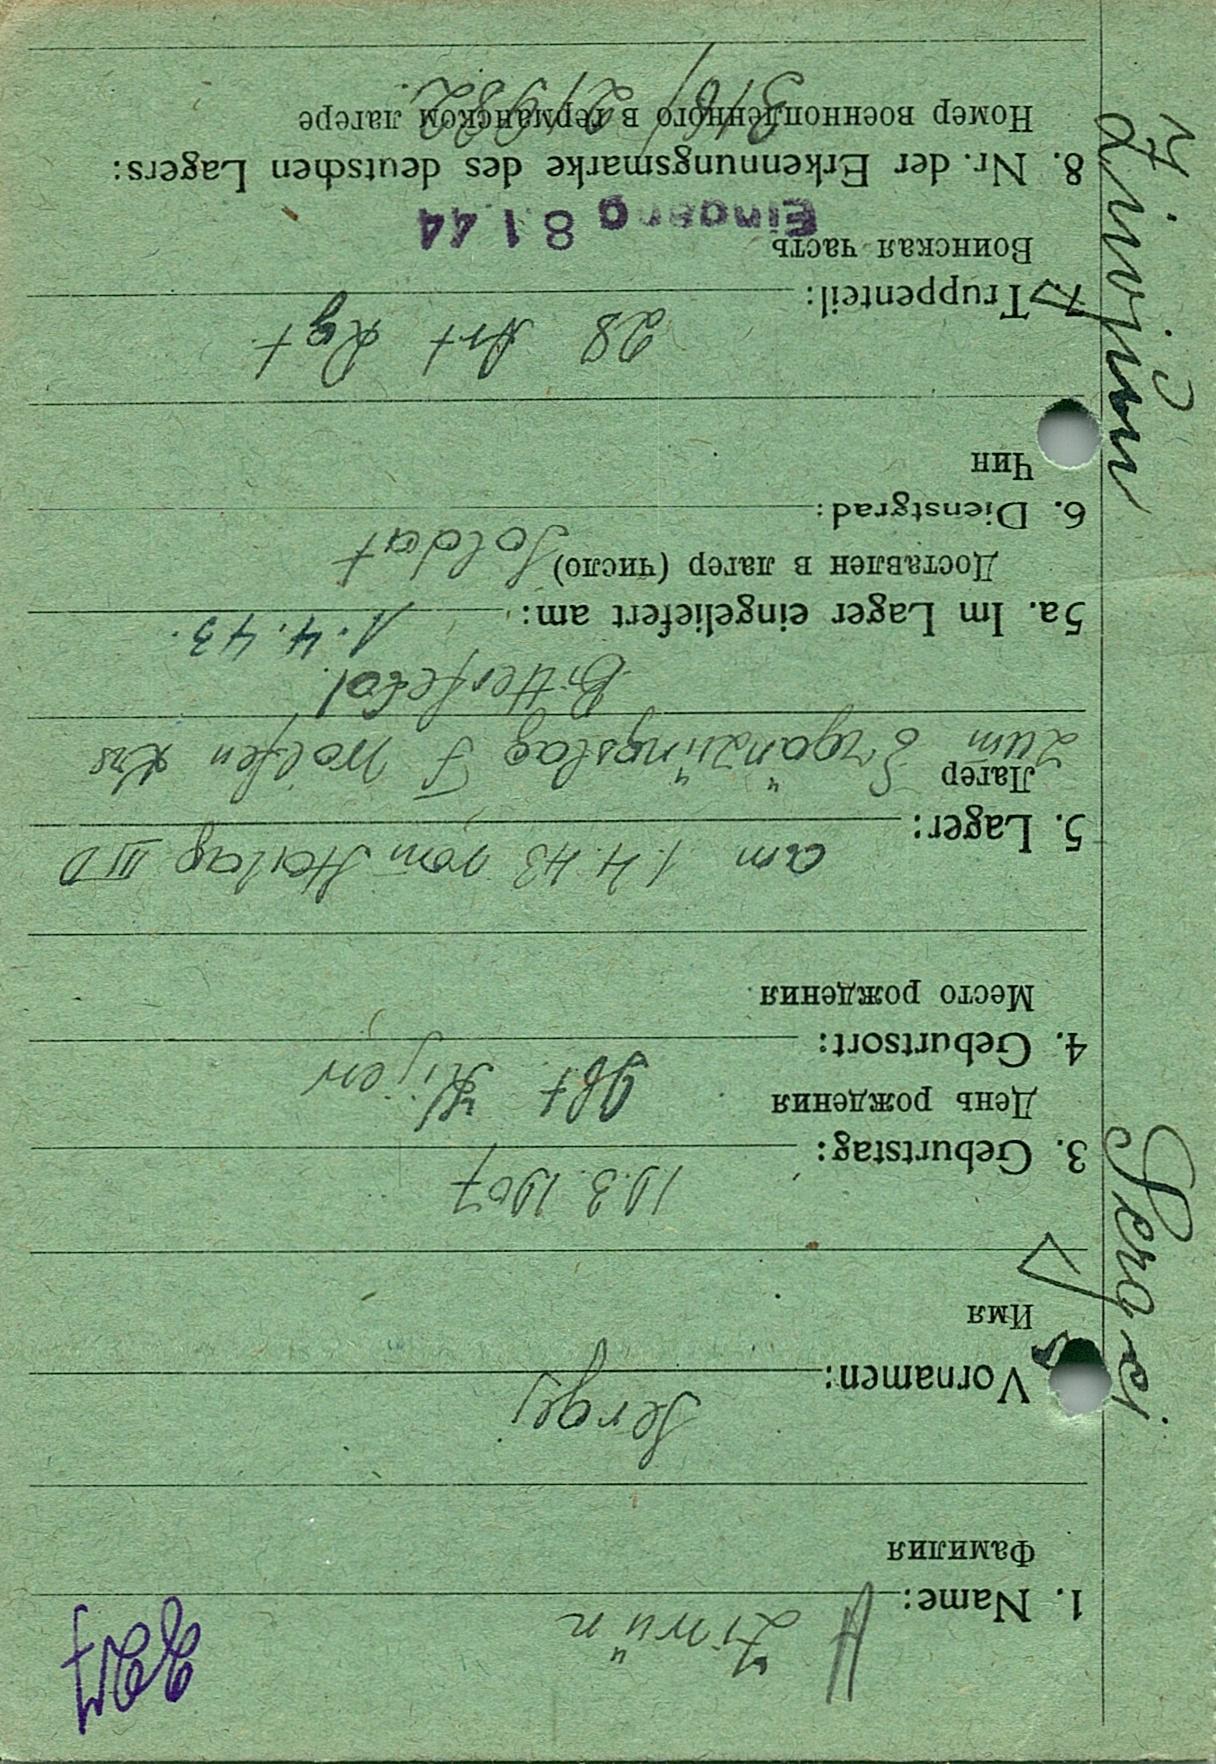 1. Name: Ziwün
Фамилия
Vornamen: Sergej
Имя
3. Geburtstag: 19.3.1907
День рождения
4. Geburtsort: Gbt Kijew
Место рождения
5. Lager: am 1.4.43 vom Stalag III D
Лагер
zum Ergänzüngslag F Wolfen Krs
Bitterfeld.
5a. Im Lager eingeliefert am: 1.4.43.
Доставлен в лагер (число)
6. Dienstgrad: Soldat
Чин
Truppenteil: 28 Art Rgt
Воинская часть
Eingang 8 1. 44
8. Nr. der Erkennungsmarke des deutschen Lagers:
Номер военнопленного в германском лагере
316/21982
Ziwjun
Sergej